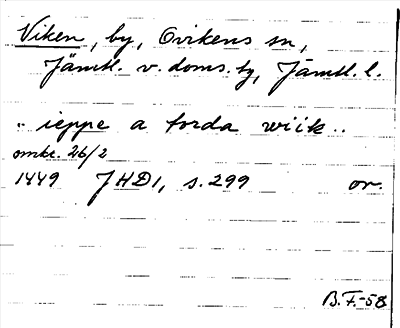 Viken, by, Ovikens sn,
Jämtl. v. doms. tg, Jämtl. l.
.. ieppe a torda wiik ..
omkr. 26/2
1449 JHD1, s. 299 or.
B.F.-58